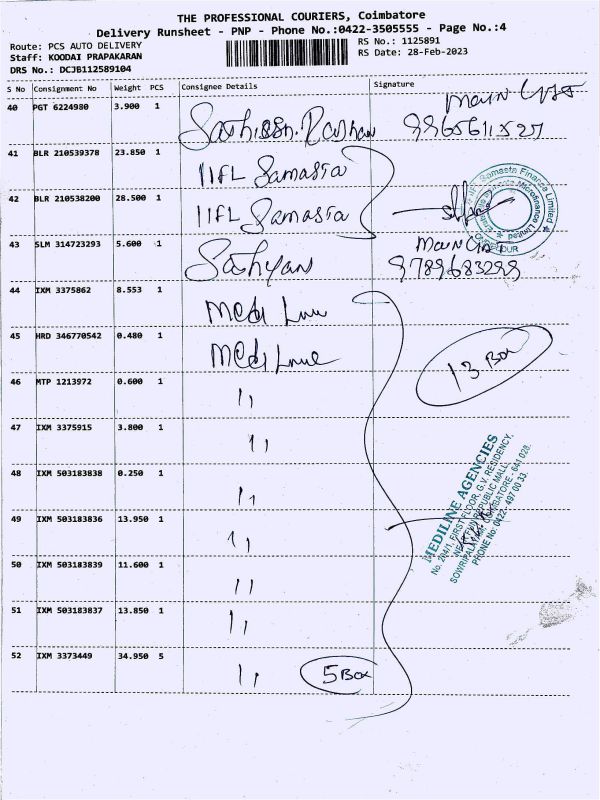 THE PROFESSIONAL COURIERS, Coimbatore
Delivery Runsheet - PNP - Phone No.:0422-3505555 - Page No.:4
Route: PCS AUTO DELIVERY
RS No.: 1125891
Staff: KOODAI PRAPAKARAN
RS Date: 28-Feb-2023
DRS No.: DCJB112589104
S No Consignment No Weight PCS Consignee Details Signature
40 PGT 6224980 3.900 1 9965611527
41 BLR 210539378 23.850 1 IIFL Samasta
42 BLR 210538200 28.500 1 IIFL Samasta
Samasta Finance Limited
43 SLM 314723293 5.600 1 Sathyan 9789683299
44 IXM 3375862 8.553 1 Medi Line
45 HRD 346770542 0.480 1 Medi Line
13 Box
46 MTP 1213972 0.600 1 "
47 IXM 3375915 3.800 1 "
48 IXM 503183838 0.250 1 "
49 IXM 503183836 13.950 1 "
50 IXM 503183839 11.600 1 "
51 IXM 503183837 13.850 1 "
52 IXM 3373449 34.950 5 " 5 Box
MEDILINE AGENCIES
No. 204/1, FIRST FLOOR, G.V. RESIDENCY,
REPUBLIC MALL,
COIMBATORE - 641 028.
PHONE No: 0422-497 00 33.